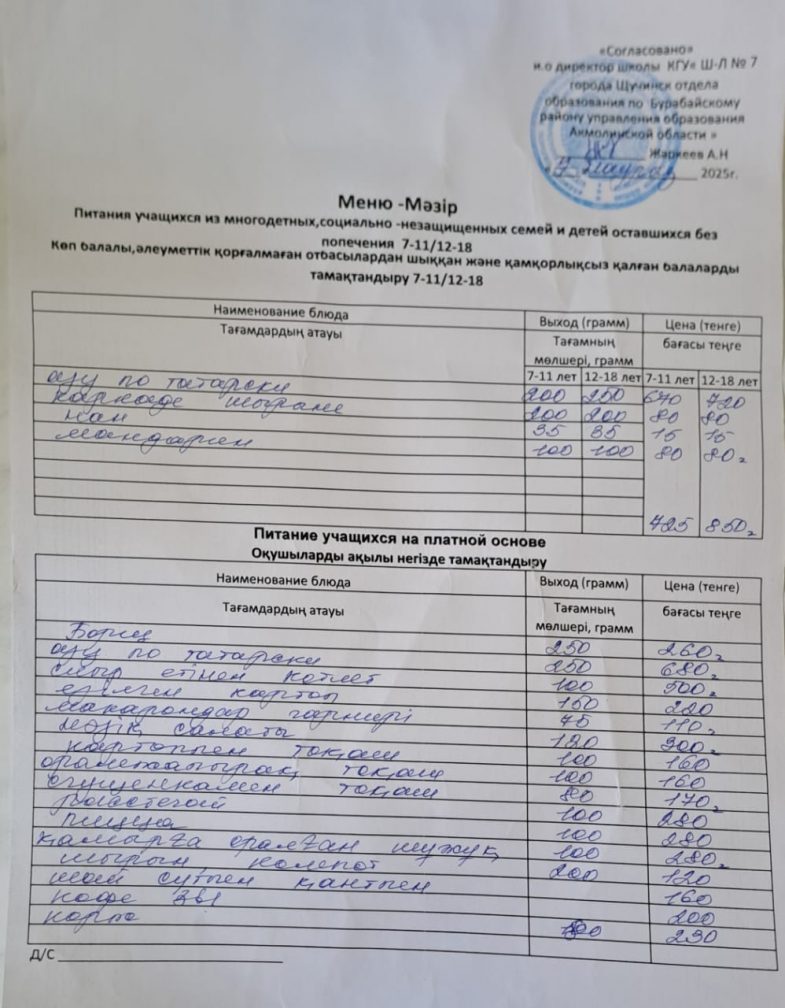 «Согласовано»
и.о директор школы КГУ« Ш-Л № 7
города Щучинск отдела
образования по Бурабайскому
району управления образования
Акмолинской области »
Жаркеев А.Н
2025г.
Меню -Мәзір
Питания учащихся из многодетных,социально -незащищенных семей и детей оставшихся без
попечения 7-11/12-18
Көп балалы,әлеуметтік қорғалмаған отбасылардан шыққан және қамқорлықсыз қалған балаларды
тамақтандыру 7-11/12-18
Наименование блюда Выход (грамм) Цена (тенге)
Тағамдардың атауы Тағамның мөлшері, грамм бағасы теңге
7-11 лет 12-18 лет 7-11 лет 12-18 лет
азу по татарски 200 250 720
каркаде шырыны 200 200 80 80
нан 35 35 15 15
мандарин 100 100 80 80
850
Питание учащихся на платной основе
Оқушыларды ақылы негізде тамақтандыру
Наименование блюда Выход (грамм) Цена (тенге)
Тағамдардың атауы Тағамның мөлшері, грамм бағасы теңге
Борщ 250 260
азу по татарски 250 680
сиыр етінен котлет 100 500
езілген картоп 150 220
макарондар гарнирі 75 110
салаты 120 300
картоппен тоқаш 100 160
тоқаш 100 160
сгущенкамен тоқаш 80 170
100 280
пицца 100 280
қамырға оралған шұжық 100 280
компот 200 120
шай сүтпен қантпен 160
кофе 3в1 200
230
Д/С